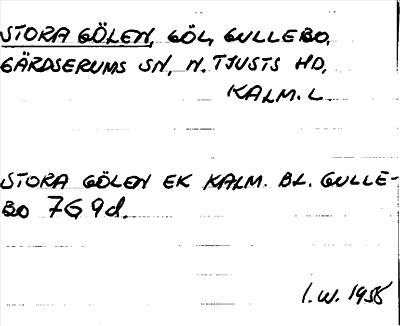 STORA GÖLEN, GÖL, GULLEBO,
GÄRDSERUMS SN, N. TJUSTS HD,
KALM. L.
STORA GÖLEN EK KALM. BL. GULLE-
BO 7G 9d.
I.W. 1958